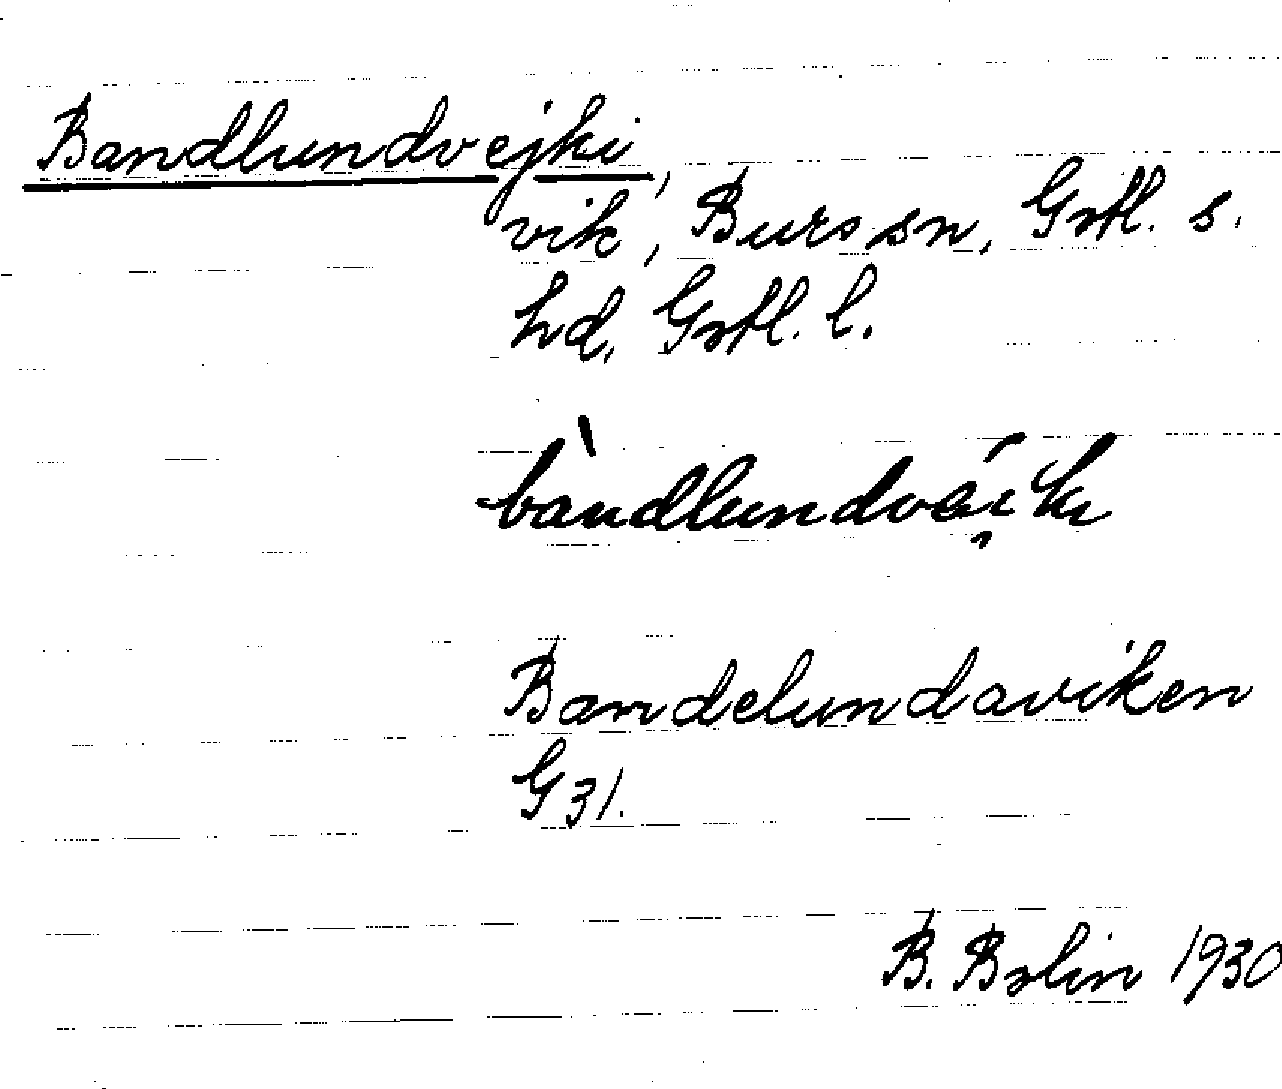 Bandlundvejki,
vik, Burs sn, Gotl. s.
hd, Gotl. l.
bàndlundváiku
Bandelundaviken
G 31.
B. Bolin 1930